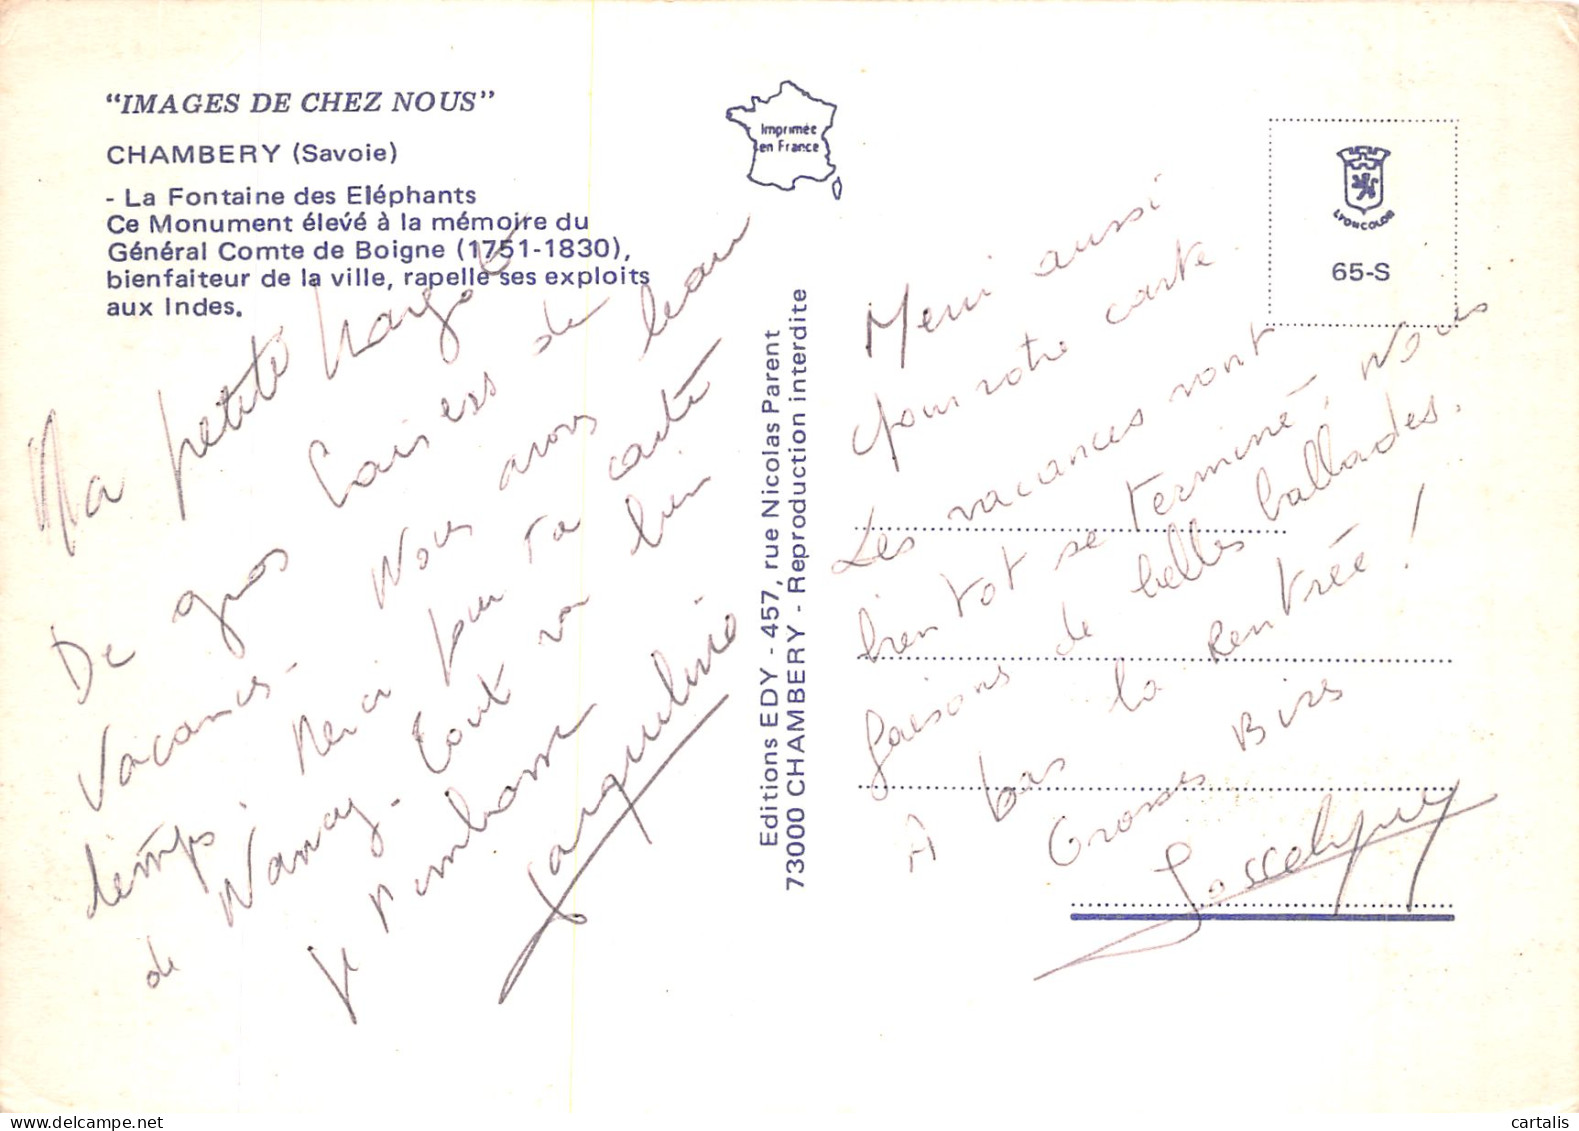 "IMAGES DE CHEZ NOUS"
CHAMBERY (Savoie)
- La Fontaine des Eléphants
Ce Monument élevé à la mémoire du
Général Comte de Boigne (1751-1830),
bienfaiteur de la ville, rapelle ses exploits
aux Indes.
Imprimée
en France
LYONCOLOR
65-S
Editions EDY - 457, rue Nicolas Parent
73000 CHAMBERY - Reproduction interdite
Ma petite Margot
De gros baisers de
vacances. Nous avons beau
temps. Merci pour ta carte
de Nancay. Tout va bien
Je t'embrasse
Jacqueline
Merci aussi
pour votre carte.
Les vacances vont
bientot se terminé, Nous
faisons de belles ballades.
A bas la Rentrée !
Grosses Bises
Josselyne
cartalis